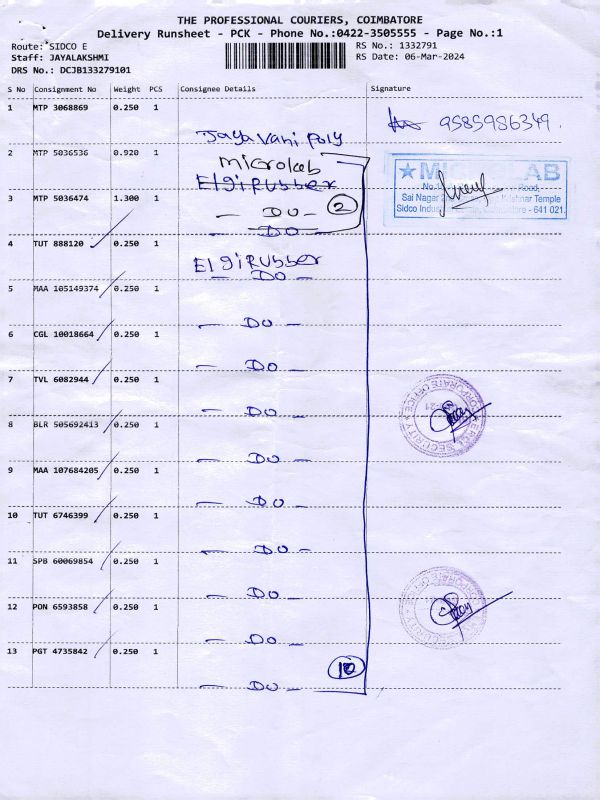 THE PROFESSIONAL COURIERS, COIMBATORE
Delivery Runsheet - PCK - Phone No.:0422-3505555 - Page No.:1
Route: SIDCO E
Staff: JAYALAKSHMI
DRS No.: DCJB133279101
RS No.: 1332791
RS Date: 06-Mar-2024
S No Consignment No Weight PCS Consignee Details Signature
1 MTP 3068869 0.250 1 Jaya Vani Poly 9585956349.
2 MTP 5036536 0.920 1 Microlab
Elgi Rubber
3 MTP 5036474 1.300 1 - DO - 2
DO
4 TUT 888120 0.250 1 Elgi Rubber
- DO -
5 MAA 105149374 0.250 1 - DO -
6 CGL 10018664 0.250 1 - DO -
7 TVL 6082944 0.250 1 - DO -
8 BLR 505692413 0.250 1 - DO -
9 MAA 107684205 0.250 1 - DO -
10 TUT 6746399 0.250 1 - DO -
11 SPB 60069854 0.250 1 - DO -
12 PON 6593858 0.250 1 - DO -
13 PGT 4735842 0.250 1 - DO - 10
AB
No. Road,
Sai Nagar Temple
Sidco - 641 021.
CORPORATE OFFICE
SECURITY
CORPORATE OFFICE
SECURITY